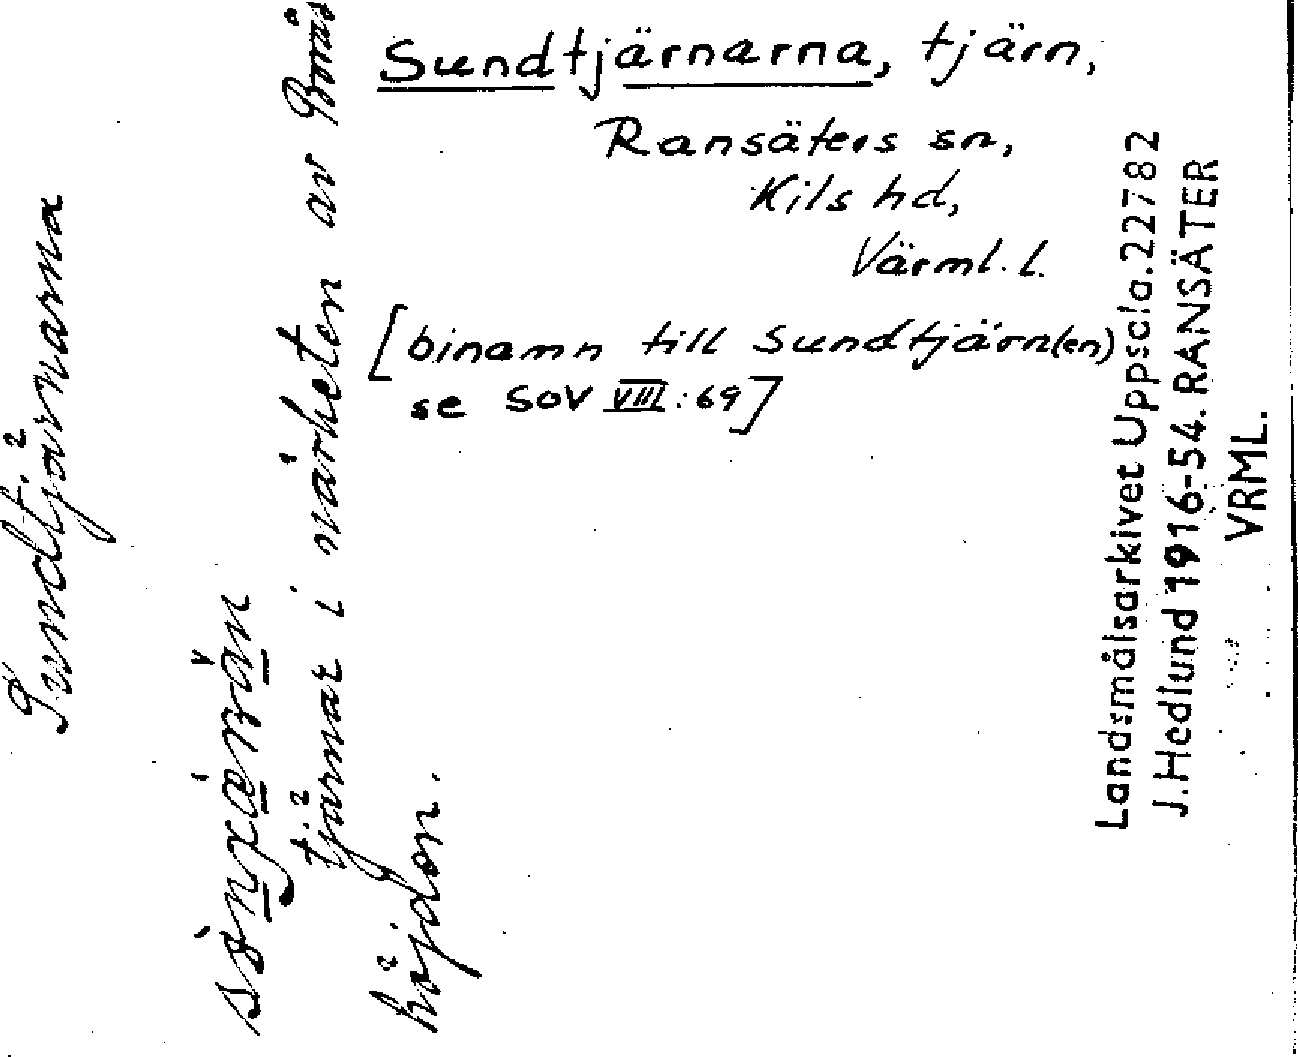 Sundtjärnarna, tjärn,
Ransäters sn,
Kils hd,
Värml. l.
[binamn till Sundtjärn(en)
se SOV VIII:69]
Sundtjärnarna
tjärnar i närheten av Borås
höjden.
Landsmålsarkivet Uppsala. 22782
J. Hedlund 1916-54. RANSÄTER
VRML.